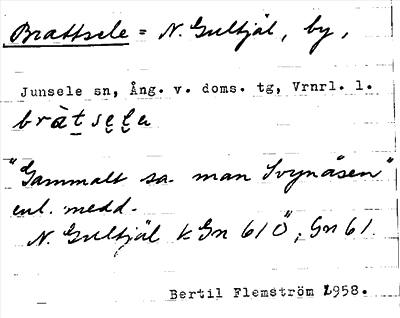 Brattsele = N. Gulsjäl, by,
Junsele sn, Ång. v. doms. tg, Vrnrl. l.
bràtsela
"Gammalt sa man Svynåsen"
enl. medd.
N. Gulsjäl k Gn 61 Ö, Gn 61.
Bertil Flemström 1958.